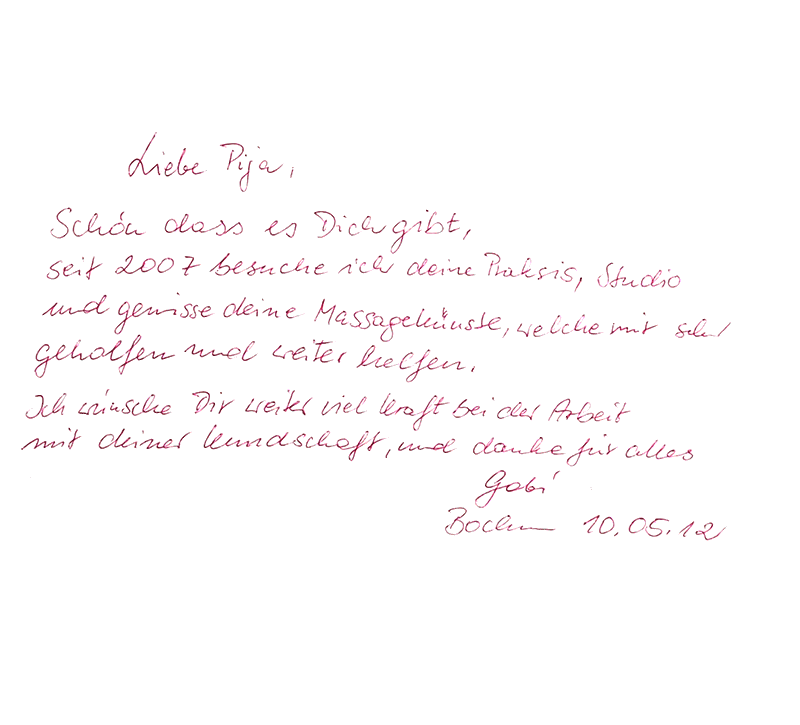 Liebe Pija,
Schön dass es Dich gibt,
seit 2007 besuche ich deine Praksis, Studio
und genisse deine Massagekünste, welche mit sehr
geholfen und weiter helfen.
Ich wünsche Dir weiter viel kraft bei der Arbeit
mit deiner kundschaft, und danke für alles
Gabi
Bochum 10.05.12